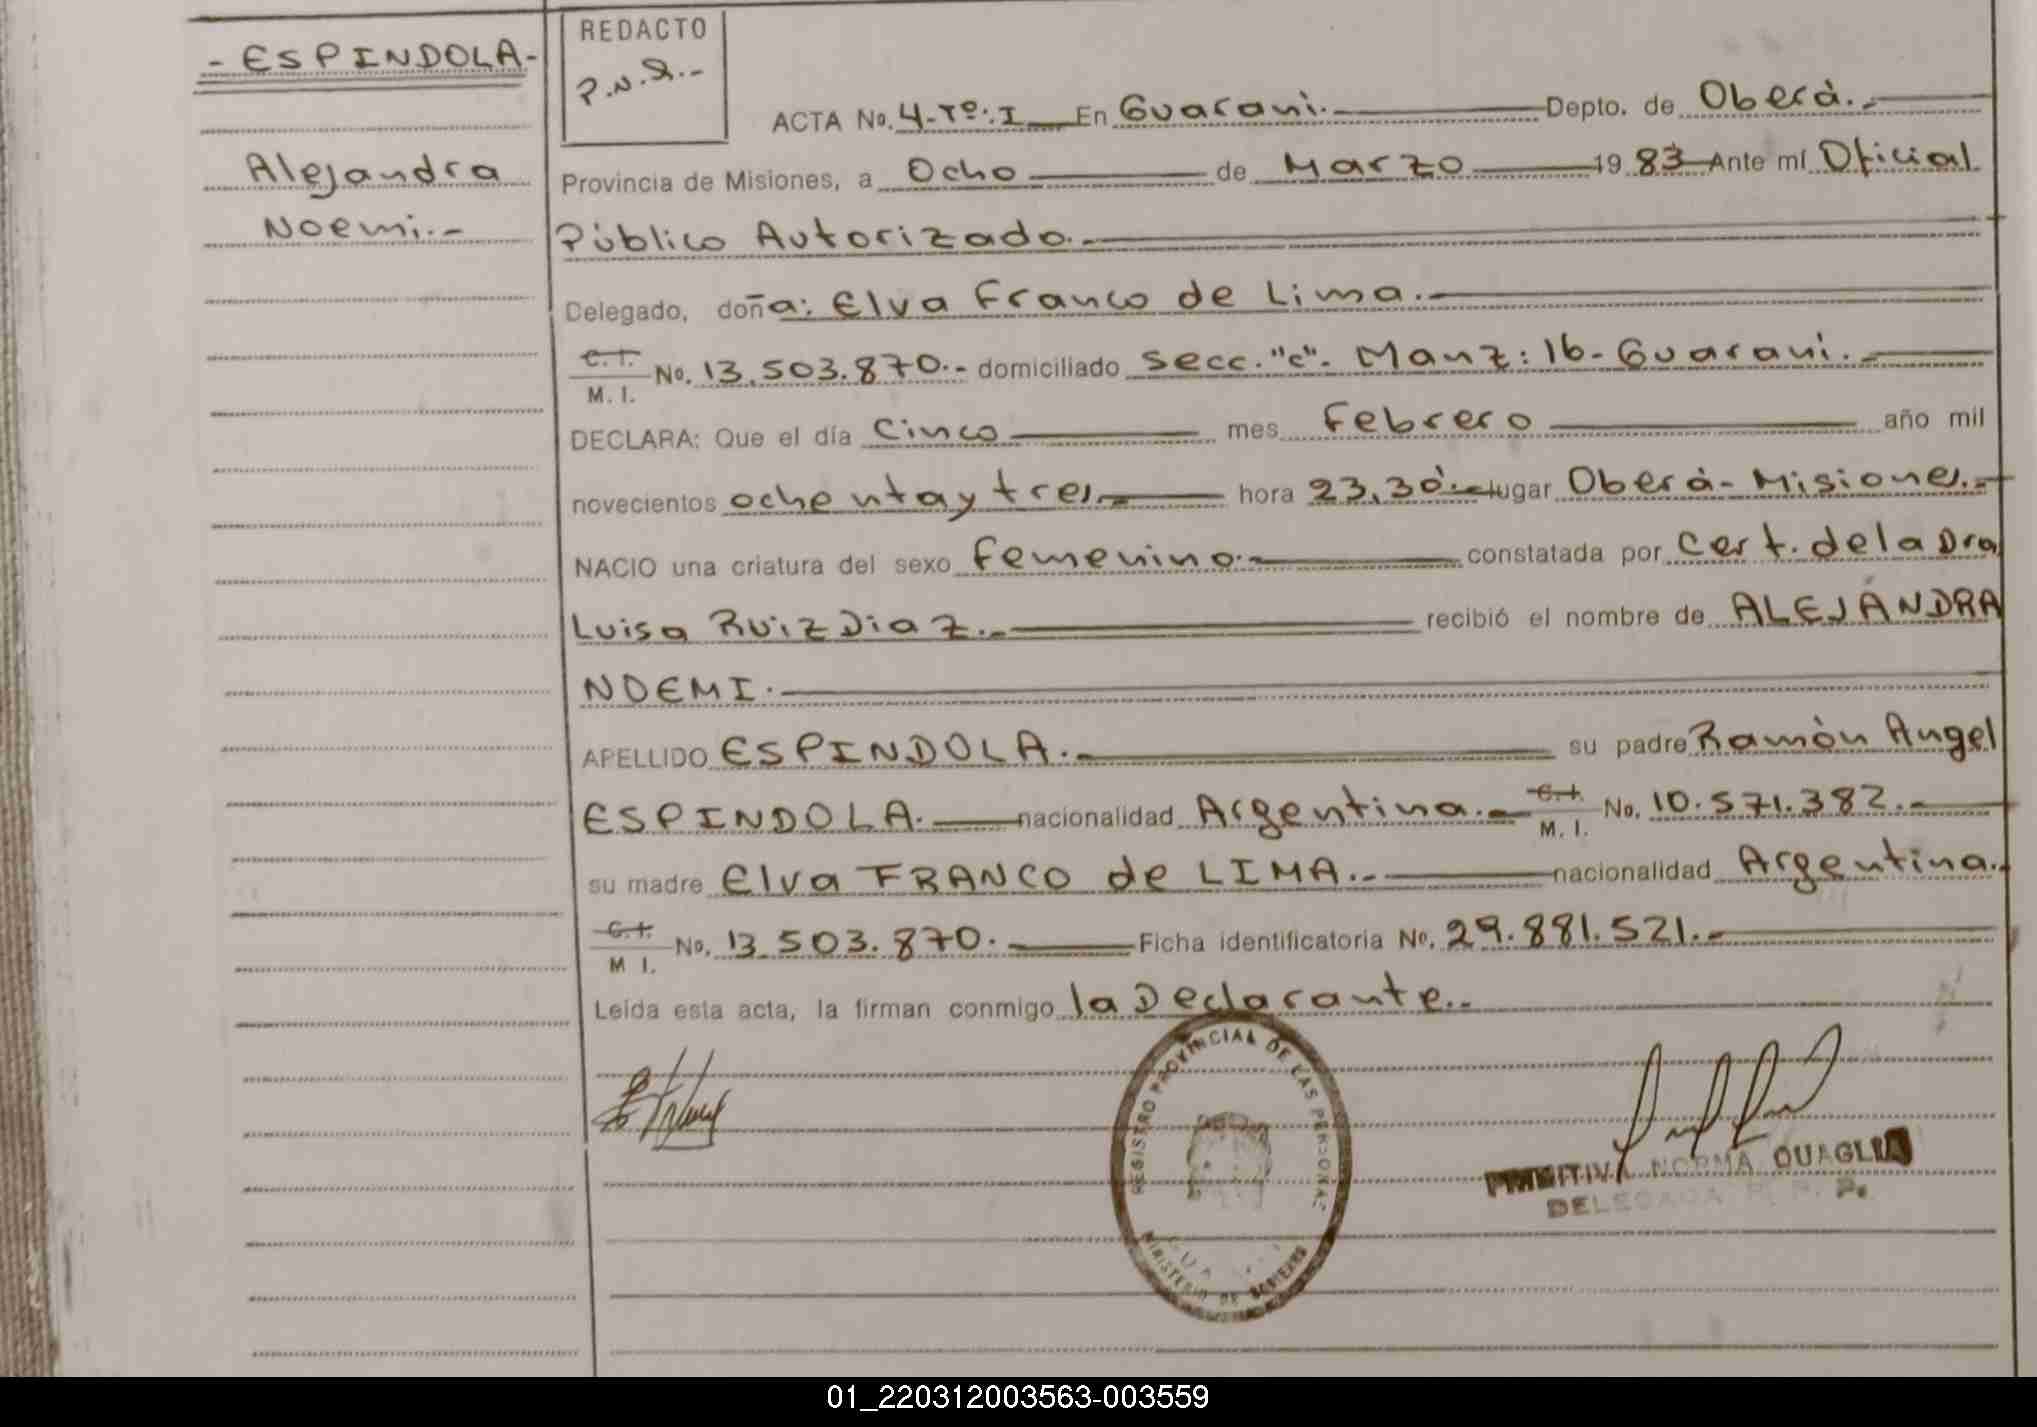 - ESPINDOLA -
Alejandra
Noemi.-
REDACTO
P.N.Q.-
ACTA No. 4-Tº.I En Guarani. Depto. de Oberà.-
Provincia de Misiones, a Ocho de Marzo 19 83 Ante mí Oficial
Público Autorizado.-
Delegado, doña: Elva Franco de Lima.-
C.I.
M. I. No. 13.503.870.- domiciliado secc."c"- Manz: 16- Guarani.-
DECLARA: Que el día Cinco mes Febrero año mil
novecientos ochenta y tres.- hora 23,30'.- lugar Oberà- Misiones.-
NACIO una criatura del sexo Femenino.- constatada por Cert. de la Dra
Luisa Ruiz Diaz.- recibió el nombre de ALEJANDRA
NOEMI.
APELLIDO ESPINDOLA.- su padre Ramòn Angel
ESPINDOLA. nacionalidad Argentina.- C.I.
M. I. No. 10.571.382.-
su madre Elva FRANCO de LIMA.- nacionalidad Argentina.-
C.I.
M I. No. 13.503.870. Ficha identificatoria No. 29.881.521.-
Leida esta acta, la firman conmigo la Declarante.-
REGISTRO PROVINCIAL DE LAS PERSONAS
MINISTERIO DE GOBIERNO
PRIMITIVA NORMA QUAGLIA
DELEGADA R. P. P.
01_220312003563-003559